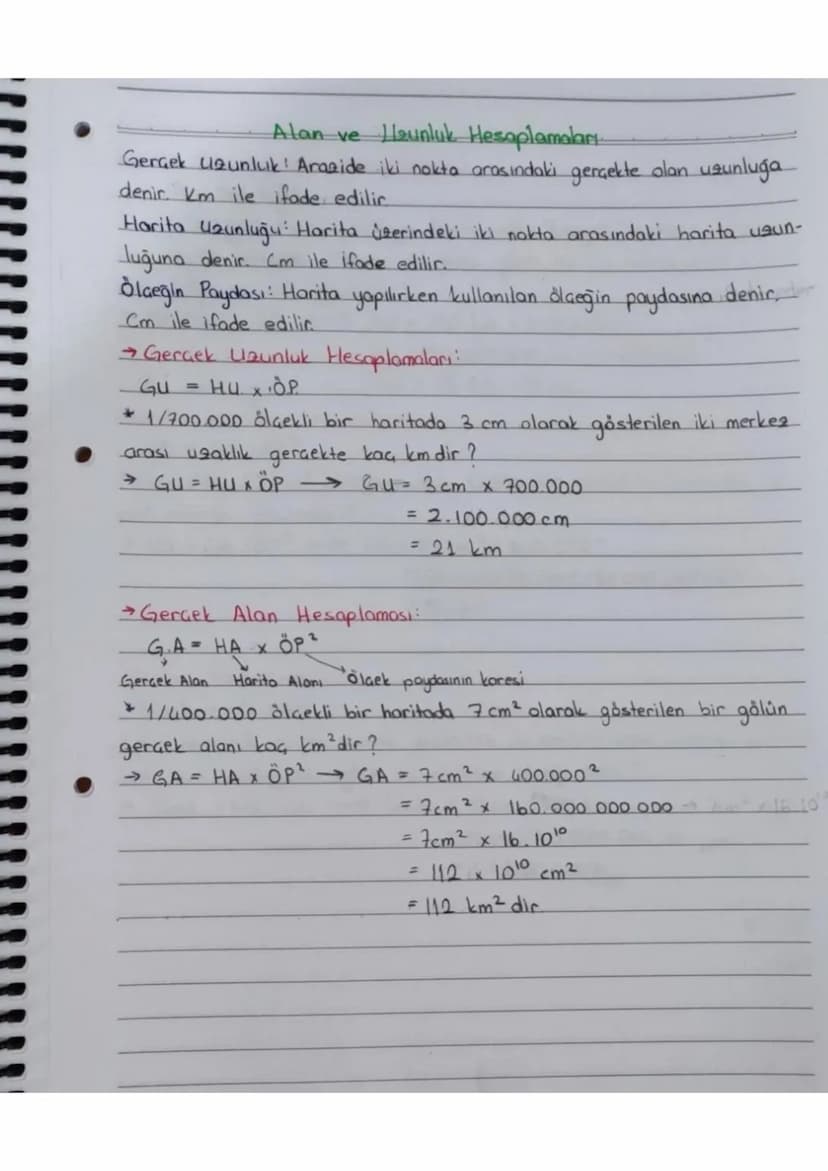 Alan ve Uzunluk Hesaplamaları
Gerçek uzunluk: Arazide iki nokta arasındaki gerçekte olan uzunluğa
denir. Km ile ifade edilir
Harita uzunluğu: Harita üzerindeki iki nokta arasındaki harita uzun-
luğuna denir. Cm ile ifade edilir.
Ölçeğin Paydası: Harita yapılırken kullanılan ölçeğin paydasına denir.
Cm ile ifade edilir.
→ Gerçek Uzunluk Hesaplamaları:
GU = HU x ÖP.
* 1/700.000 ölçekli bir haritada 3 cm olarak gösterilen iki merkez
arası uzaklık gerçekte kaç kmdir?
→ GU = HU x ÖP → GU = 3 cm x 700.000
= 2.100.000 cm
= 21 km
→ Gerçek Alan Hesaplaması:
G.A = HA x ÖP²
Gerçek Alan Harita Alanı Ölçek paydasının karesi
* 1/400.000 ölçekli bir haritada 7 cm² olarak gösterilen bir gölün
gerçek alanı kaç km² dir?
→ GA = HA x ÖP² → GA = 7cm² x 400.000²
= 7cm² x 160.000.000.000
= 7cm² x 16.10¹⁰
= 112 x 10¹⁰ cm²
= 112 km² dir